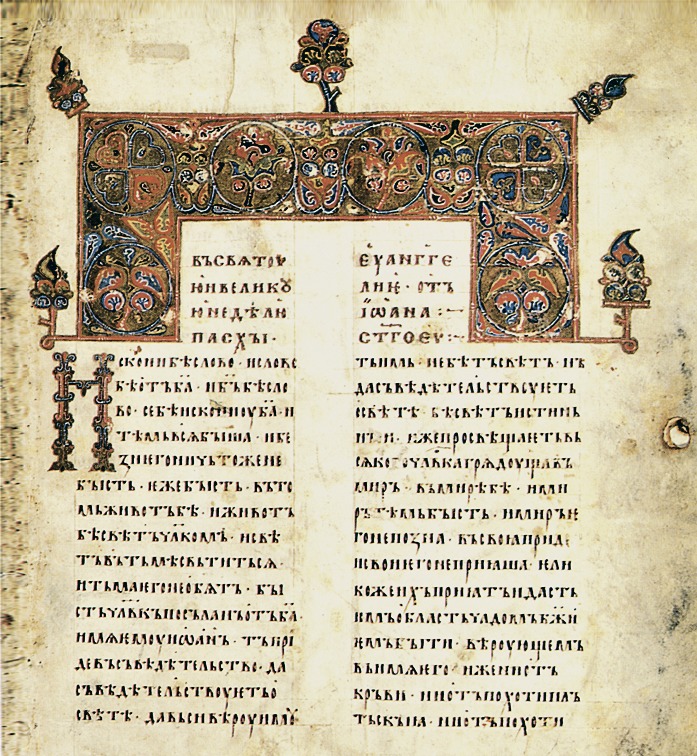 ВЪСВѦТОУ
ЮИВЕЛИКꙊ
ЮНЕДѢЛЮ
ПАСХЫ·
Искони бѣ слово · и слово
бѣ отъ б҃а · и б҃ъ бѣ сло
во · се бѣ искони оу б҃а · и
тѣмь вꙗ быша · и бе
з него ничьтоже не
бысть · еже бысть · въ то
мь животъ бѣ · и животъ
бѣ свѣтъ чл҃комъ · и свѣ
тъ въ тьмѣ свьтитьсѧ ·
и тьма его не обѧтъ · бы
сть чл҃вкъ посъланъ отъ б҃а ·
имѧ ѥмоу иѡан҃ъ · тъ прі
де въ съвѣдѣтельство · да
съвѣдѣтельствоуеть о
свѣтѣ · да вьси вѣроу имоу
ЕУАНГГЕ
ЛИѤ · ОТЪ
ІѠАНА :~
СТ҃ГОЕУ :~
тьимь · не бѣ тъ свѣтъ · нъ
да съвѣдѣтельствоуеть
о свѣтѣ · бѣ свѣтъ истинь
ныи · иже просвѣщаеть вь
сѧкого чл҃вка грѧдоуща въ
миръ · въ мирѣ бѣ · и ми
ръ тѣмь бысть · и миръ ѥ
го не позна · въ своꙗ приде
и свои ѥго не приꙗша · ели
коже ихъ приѧтъ и дасть
имъ область чѧдомъ бж҃и
емъ быти · вѣроующемъ
въ имѧ его · иже ни отъ
кръви · ни отъ похоти пл
тьскыꙗ · ни отъ похоти